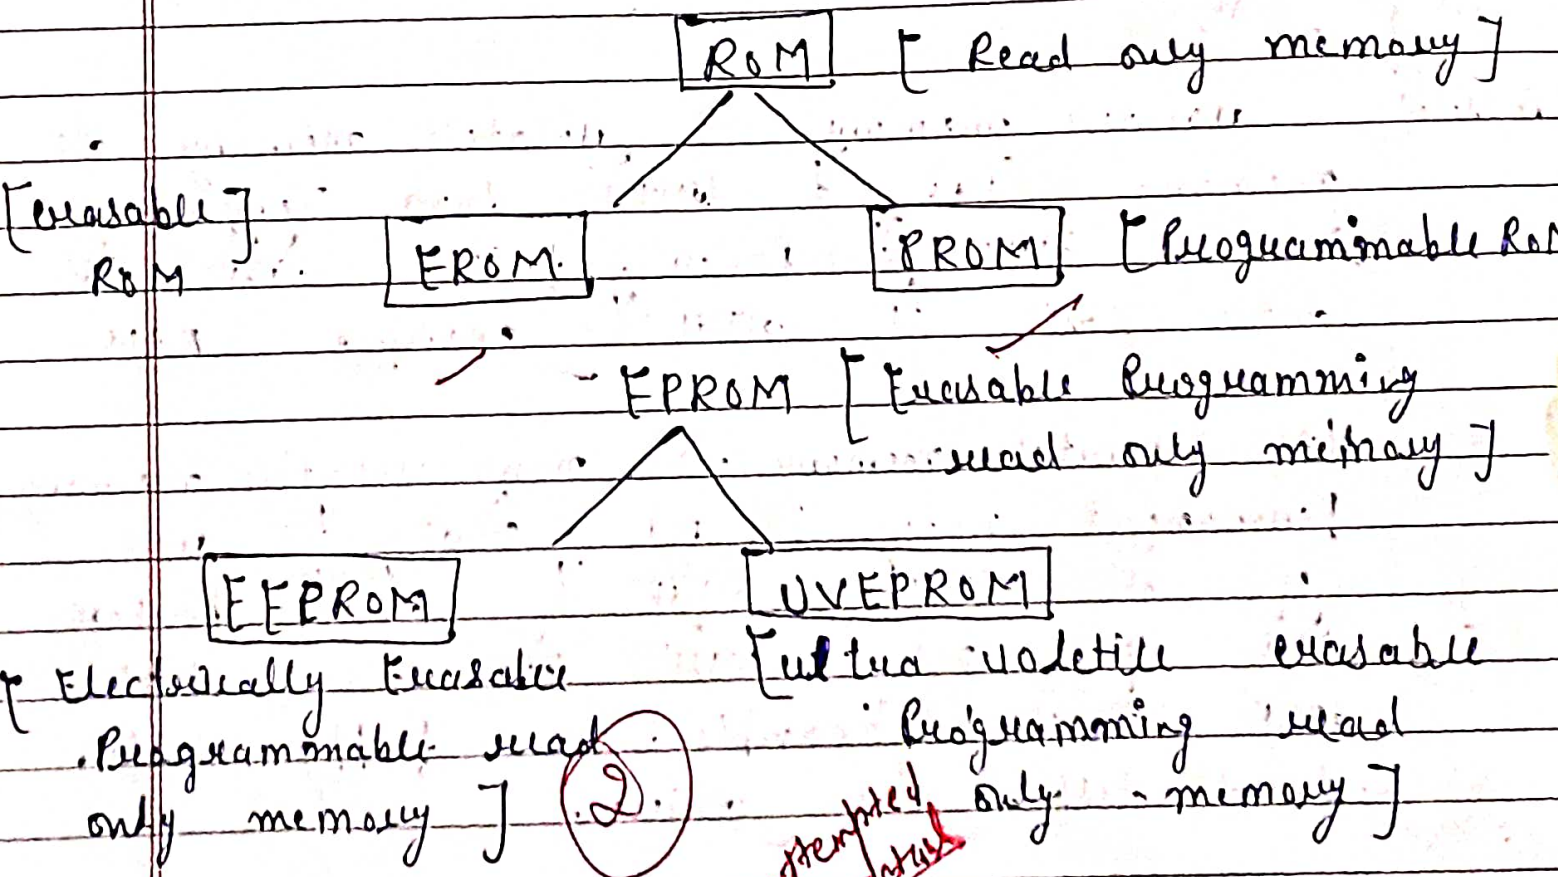 ROM [ Read only memory ]
[erasable] ROM
EROM
PROM [ Programmable Ro
EPROM [ Erasable Programming
read only memory ]
EEPROM
UVEPROM
[ Electrically Erasable
Programmable read
only memory ]
[ultra voletile erasable
Programming read
only memory ]
2